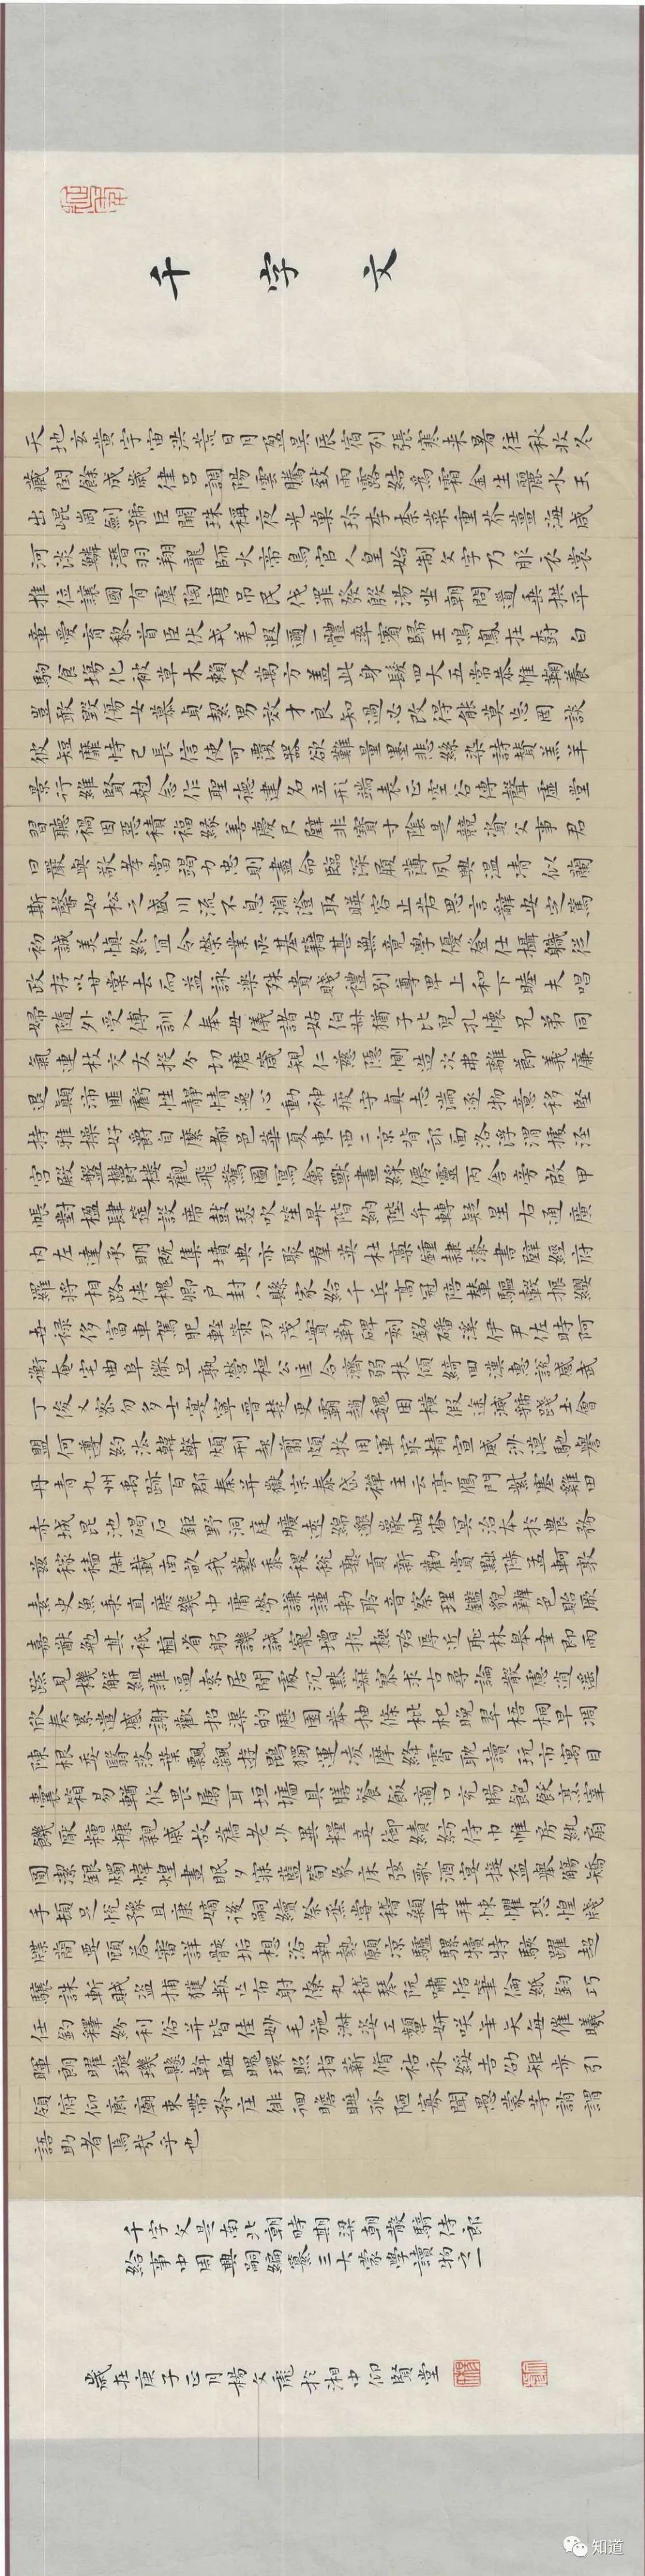 千字文
天地玄黄宇宙洪荒日月盈昃辰宿列張寒来暑往秋收冬
藏閏餘成歲律呂調陽雲騰致雨露結為霜金生麗水玉
出崐崗劍號巨闕珠稱夜光菓珍李柰菜重芥薑海咸
河淡鱗潛羽翔龍師火帝鳥官人皇始制文字乃服衣裳
推位讓國有虞陶唐吊民伐罪發殷湯坐朝問道垂拱平
章愛育黎首臣伏戎羌遐邇一體率賓歸王鳴鳳在樹白
駒食場化被草木賴及萬方蓋此身髮四大五常恭惟鞠養
豈敢毀傷女慕貞絜男效才良知過必改得能莫忘罔談
彼短靡恃己長信使可覆器欲難量墨悲絲染詩讚羔羊
景行維賢剋念作聖德建名立形端表正空谷傳聲虛堂
習聽禍因惡積福緣善慶尺璧非寶寸陰是競資父事君
曰嚴與敬孝當竭力忠則盡命臨深履薄夙興溫凊似蘭
斯馨如松之盛川流不息淵澄取暎容止若思言辭安定篤
初誠美慎終宜令榮業所基籍甚無竟學優登仕攝職從
政存以甘棠去而益詠樂殊貴賤禮別尊卑上和下睦夫唱
婦隨外受傅訓入奉母儀諸姑伯叔猶子比兒孔懷兄弟同
氣連枝交友投分切磨箴規仁慈隱惻造次弗離節義廉
退顛沛匪虧性靜情逸心動神疲守真志滿逐物意移堅
持雅操好爵自縻都邑華夏東西二京背邙面洛浮渭據涇
宮殿盤鬱樓觀飛驚圖寫禽獸畫綵僊靈丙舍旁啟甲
帳對楹肆筵設席鼓瑟吹笙昇階納陛弁轉疑星右通廣
內左達承明既集墳典亦聚群英杜稾鍾隸漆書壁經府
羅將相路俠槐卿戶封八縣家給千兵高冠陪輦驅轂振纓
世祿侈富車駕肥輕策功茂實勒碑刻銘磻溪伊尹佐時阿
衡奄宅曲阜微旦孰營桓公匡合濟弱扶傾綺回漢惠說感武
丁俊乂密勿多士寔寧晉楚更霸趙魏困橫假途滅虢踐土會
盟何遵約法韓弊煩刑起翦頗牧用軍最精宣威沙漠馳譽
丹青九州禹跡百郡秦并嶽宗泰岱禪主云亭鴈門紫塞雞田
赤城昆池碣石鉅野洞庭曠遠綿邈巖岫杳冥治本於農務
茲稼穡俶載南畝我藝黍稷稅熟貢新勸賞黜陟孟軻敦
素史魚秉直庶幾中庸勞謙謹勅聆音察理鑑貌辨色貽厥
嘉猷勉其祗植省躬譏誡寵增抗極殆辱近恥林皋幸即兩
疏見機解組誰逼索居閒處沉默寂寥求古尋論散慮逍遙
欣奏累遣慼謝歡招渠的歷園莽抽條枇杷晚翠梧桐早凋
陳根委翳落葉飄颻遊鵾獨運凌摩絳霄耽讀玩市寓目
囊箱易輶攸畏屬耳垣墻具膳餐飯適口充腸飽飫烹宰
饑厭糟糠親戚故舊老少異糧妾御績紡侍巾帷房紈扇
圓潔銀燭煒煌晝眠夕寐藍筍象床弦歌酒宴接盃舉觴矯
手頓足悅豫且康嫡後嗣續祭蒸嘗稽顙再拜悚懼恐惶牋
牒簡要顧答審詳骸垢想浴執熱願涼驢騾犢特駭躍超
驤誅斬賊盜捕獲叛亡布射僚丸嵇琴阮嘯恬筆倫紙鈞巧
任釣釋紛利俗并皆佳妙毛施淑姿工顰妍笑年矢每催曦
暉朗曜璇璣懸斡晦魄環照指薪脩祜永綏吉劭矩步引
領俯仰廊廟束帶矜庄徘徊瞻眺孤陋寡聞愚蒙等誚謂
語助者焉哉乎也
千字文是南北朝時期梁朝散騎侍郎
給事中周興嗣編纂三大蒙學讀物之一
歲在庚子正月楊文虎於湘中仰賢堂
知道